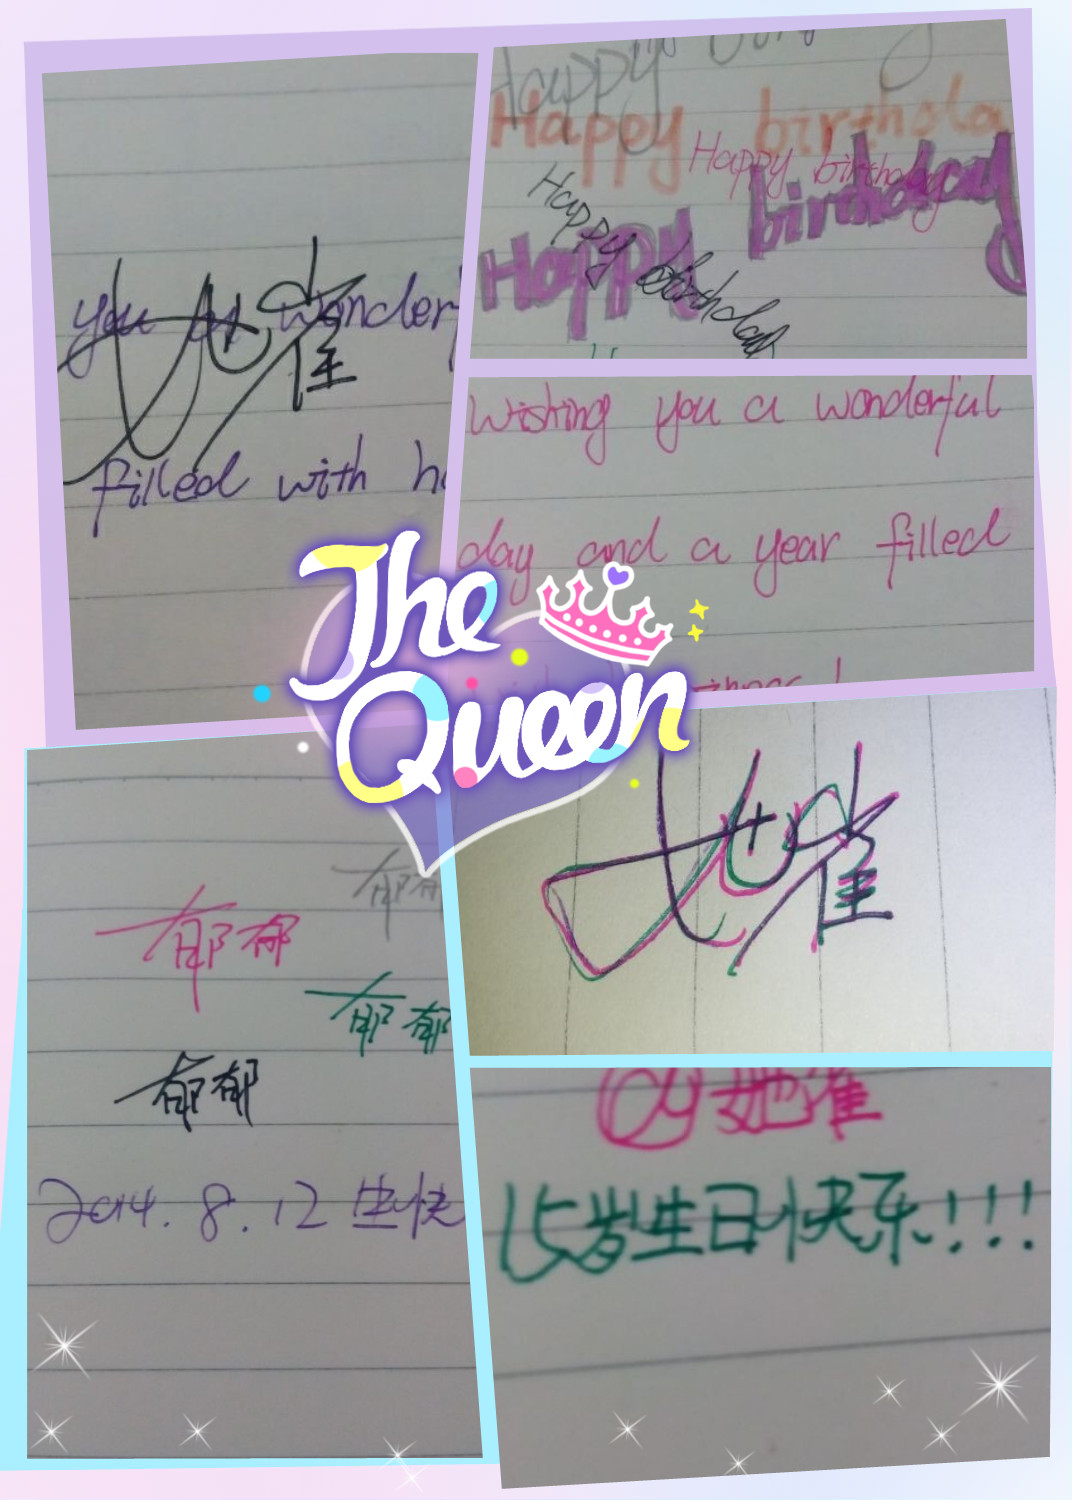 you a wonder
她雀
filled with h
Happy
Happy birthda
Happy birthday
Happy birthday
Happy birthday
Wishing you a wonderful
day and a year filled
The
Queen
郁郁
郁郁
郁郁
郁郁
2014.8.12 生快
她雀
@她雀
15岁生日快乐!!!